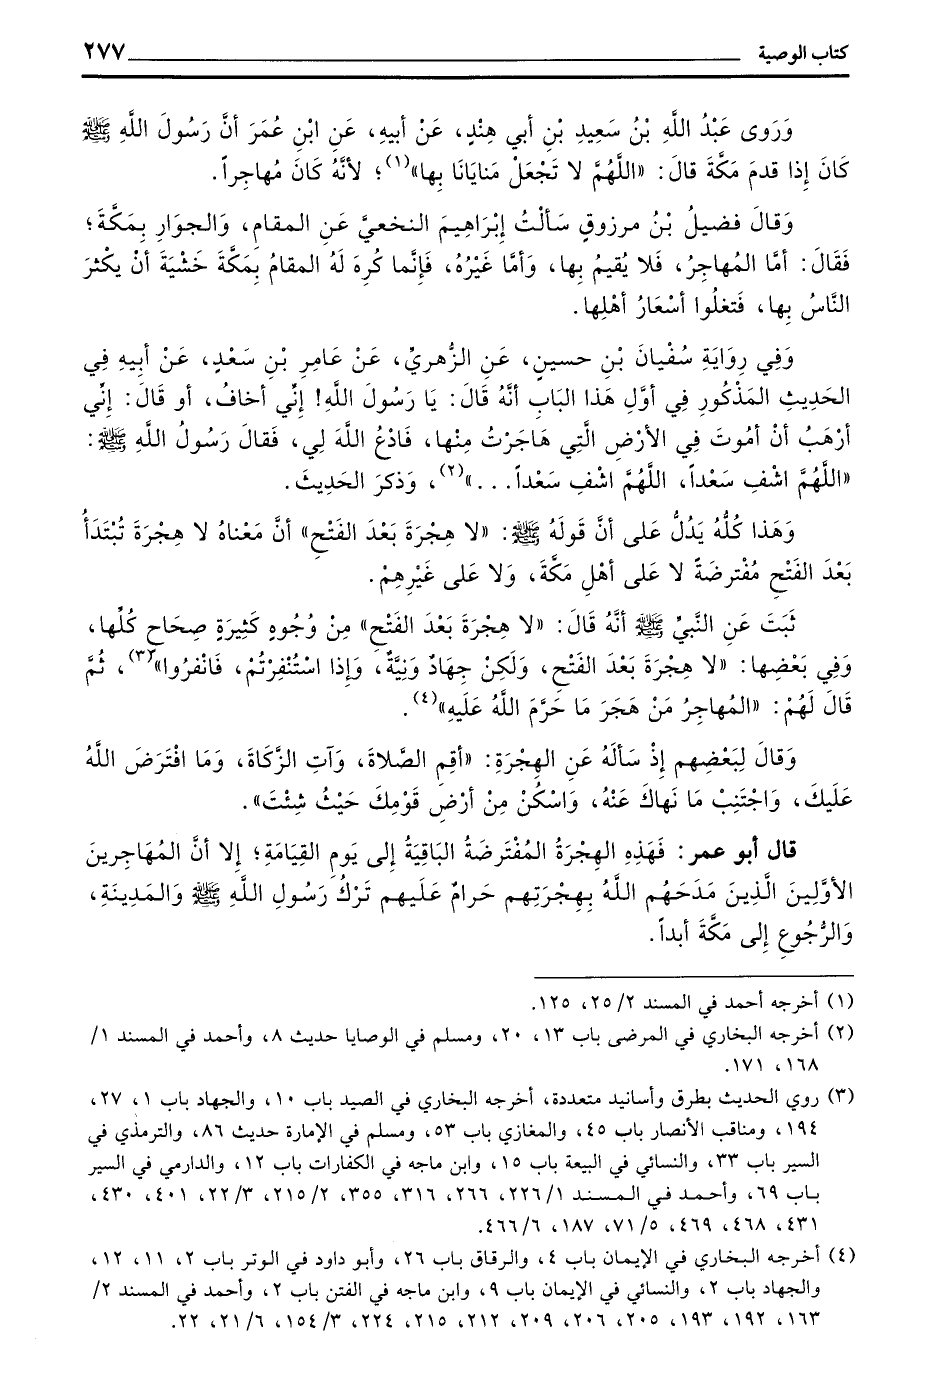 كتاب الوصية ٢٧٧
وَرَوى عَبْدُ اللَّهِ بْنُ سَعِيدِ بْنِ أبي هِنْدٍ، عَنْ أبيهِ، عَنِ ابْنِ عُمَرَ أنَّ رَسُولَ اللَّهِ ﷺ
كَانَ إذَا قدمَ مَكَّةَ قالَ: «اللَّهُمَّ لا تَجْعَلْ مَنايَانَا بِها»(١)؛ لأنَّهُ كَانَ مُهاجِراً.
وَقالَ فضيلُ بْنُ مرزوقٍ سَألْتُ إبْرَاهِيمَ النخعيَّ عَنِ المقام، وَالجوَارِ بِمَكَّةَ؛
فَقَالَ: أمَّا المُهاجِرُ، فَلا يُقيمُ بِها، وَأمَّا غَيْرُهُ، فَإنَّما كُرِهَ لَهُ المقامُ بِمَكَّةَ خَشْيَةَ أنْ يكْثرَ
النَّاسُ بِها، فَتغلُوا أسْعَارُ أهْلِها.
وَفِي رِوَايَةِ سُفْيَانَ بْنِ حسينٍ، عَنِ الزُّهريِّ، عَنْ عَامِرِ بْنِ سَعْدٍ، عَنْ أبيهِ فِي
الحَدِيثِ المَذْكُورِ فِي أوَّلِ هَذا البَابِ أنَّهُ قَالَ: يَا رَسُولَ اللَّهِ! إنِّي أخافُ، أو قَالَ: إنِّي
أرْهَبُ أنْ أمُوتَ فِي الأرْضِ الَّتِي هَاجَرْتُ مِنْها، فَادْعُ اللَّهَ لِي، فَقالَ رَسُولُ اللَّهِ ﷺ:
«اللَّهُمَّ اشْفِ سَعْداً، اللَّهُمَّ اشْفِ سَعْداً...»(٢)، وَذكرَ الحَدِيثَ.
وَهَذا كُلُّهُ يَدُلُّ عَلى أنَّ قَولَهُ ﷺ: «لا هِجْرَةَ بَعْدَ الفَتْحِ» أنَّ مَعْناهُ لا هِجْرَةَ تُبْتَدَأُ
بَعْدَ الفَتْحِ مُفْترضَةً لا عَلى أهْلِ مكَّةَ، وَلا عَلى غَيْرِهِمْ.
ثَبَتَ عَنِ النَّبيِّ ﷺ أنَّهُ قَالَ: «لا هِجْرَةَ بَعْدَ الفَتْحِ» مِنْ وُجُوهٍ كَثِيرَةٍ صِحَاحٍ كُلِّها،
وَفِي بَعْضِها: «لا هِجْرَةَ بَعْدَ الفَتْحِ، وَلَكِنْ جِهَادٌ وَنِيَّةٌ، وَإذَا اسْتُنْفِرْتُمْ، فَانْفرُوا»(٣)، ثُمَّ
قَالَ لَهُمْ: «المُهاجِرُ مَنْ هَجَرَ مَا حَرَّمَ اللَّهُ عَلَيهِ»(٤).
وَقَالَ لِبَعْضِهِم إذْ سَألَهُ عَنِ الهِجْرَةِ: «أقِمِ الصَّلاةَ، وَآتِ الزَّكَاةَ، وَمَا افْتَرَضَ اللَّهُ
عَلَيكَ، وَاجْتَنِبْ مَا نَهاكَ عَنْهُ، وَاسْكُنْ مِنْ أرْضِ قَوْمِكَ حَيْثُ شِئْتَ».
قال أبو عمر: فَهَذِهِ الهِجْرَةُ المُفْتَرضَةُ البَاقِيَةُ إلى يَومِ القِيَامَةِ؛ إلا أنَّ المُهَاجرينَ
الأوَّلِينَ الَّذِينَ مَدَحَهُم اللَّهُ بِهِجْرَتِهِم حَرامٌ عَلَيهِم تَرْكُ رَسُولِ اللَّهِ ﷺ وَالمَدِينَةِ،
وَالرُّجُوعِ إلى مَكَّةَ أبداً.
(١) أخرجه أحمد في المسند ٢/ ٢٥، ١٢٥.
(٢) أخرجه البخاري في المرضى باب ١٣، ٢٠، ومسلم في الوصايا حديث ٨، وأحمد في المسند ١/
١٦٨، ١٧١.
(٣) روي الحديث بطرق وأسانيد متعددة، أخرجه البخاري في الصيد باب ١٠، والجهاد باب ١، ٢٧،
١٩٤، ومناقب الأنصار باب ٤٥، والمغازي باب ٥٣، ومسلم في الإمارة حديث ٨٦، والترمذي في
السير باب ٣٣، والنسائي في البيعة باب ١٥، وابن ماجه في الكفارات باب ١٢، والدارمي في السير
باب ٦٩، وأحمد في المسند ١/ ٢٢٦، ٢٦٦، ٣١٦، ٣٥٥، ٢/ ٢١٥، ٣/ ٢٢، ٤٠١، ٤٣٠،
٤٣١، ٤٦٨، ٤٦٩، ٥/ ٧١، ١٨٧، ٦/ ٤٦٦.
(٤) أخرجه البخاري في الإيمان باب ٤، والرقاق باب ٢٦، وأبو داود في الوتر باب ٢، ١١، ١٢،
والجهاد باب ٢، والنسائي في الإيمان باب ٩، وابن ماجه في الفتن باب ٢، وأحمد في المسند ٢/
١٦٣، ١٩٢، ١٩٣، ٢٠٥، ٢٠٦، ٢٠٩، ٢١٢، ٢١٥، ٢٢٤، ٣/ ١٥٤، ٦/ ٢١، ٢٢.